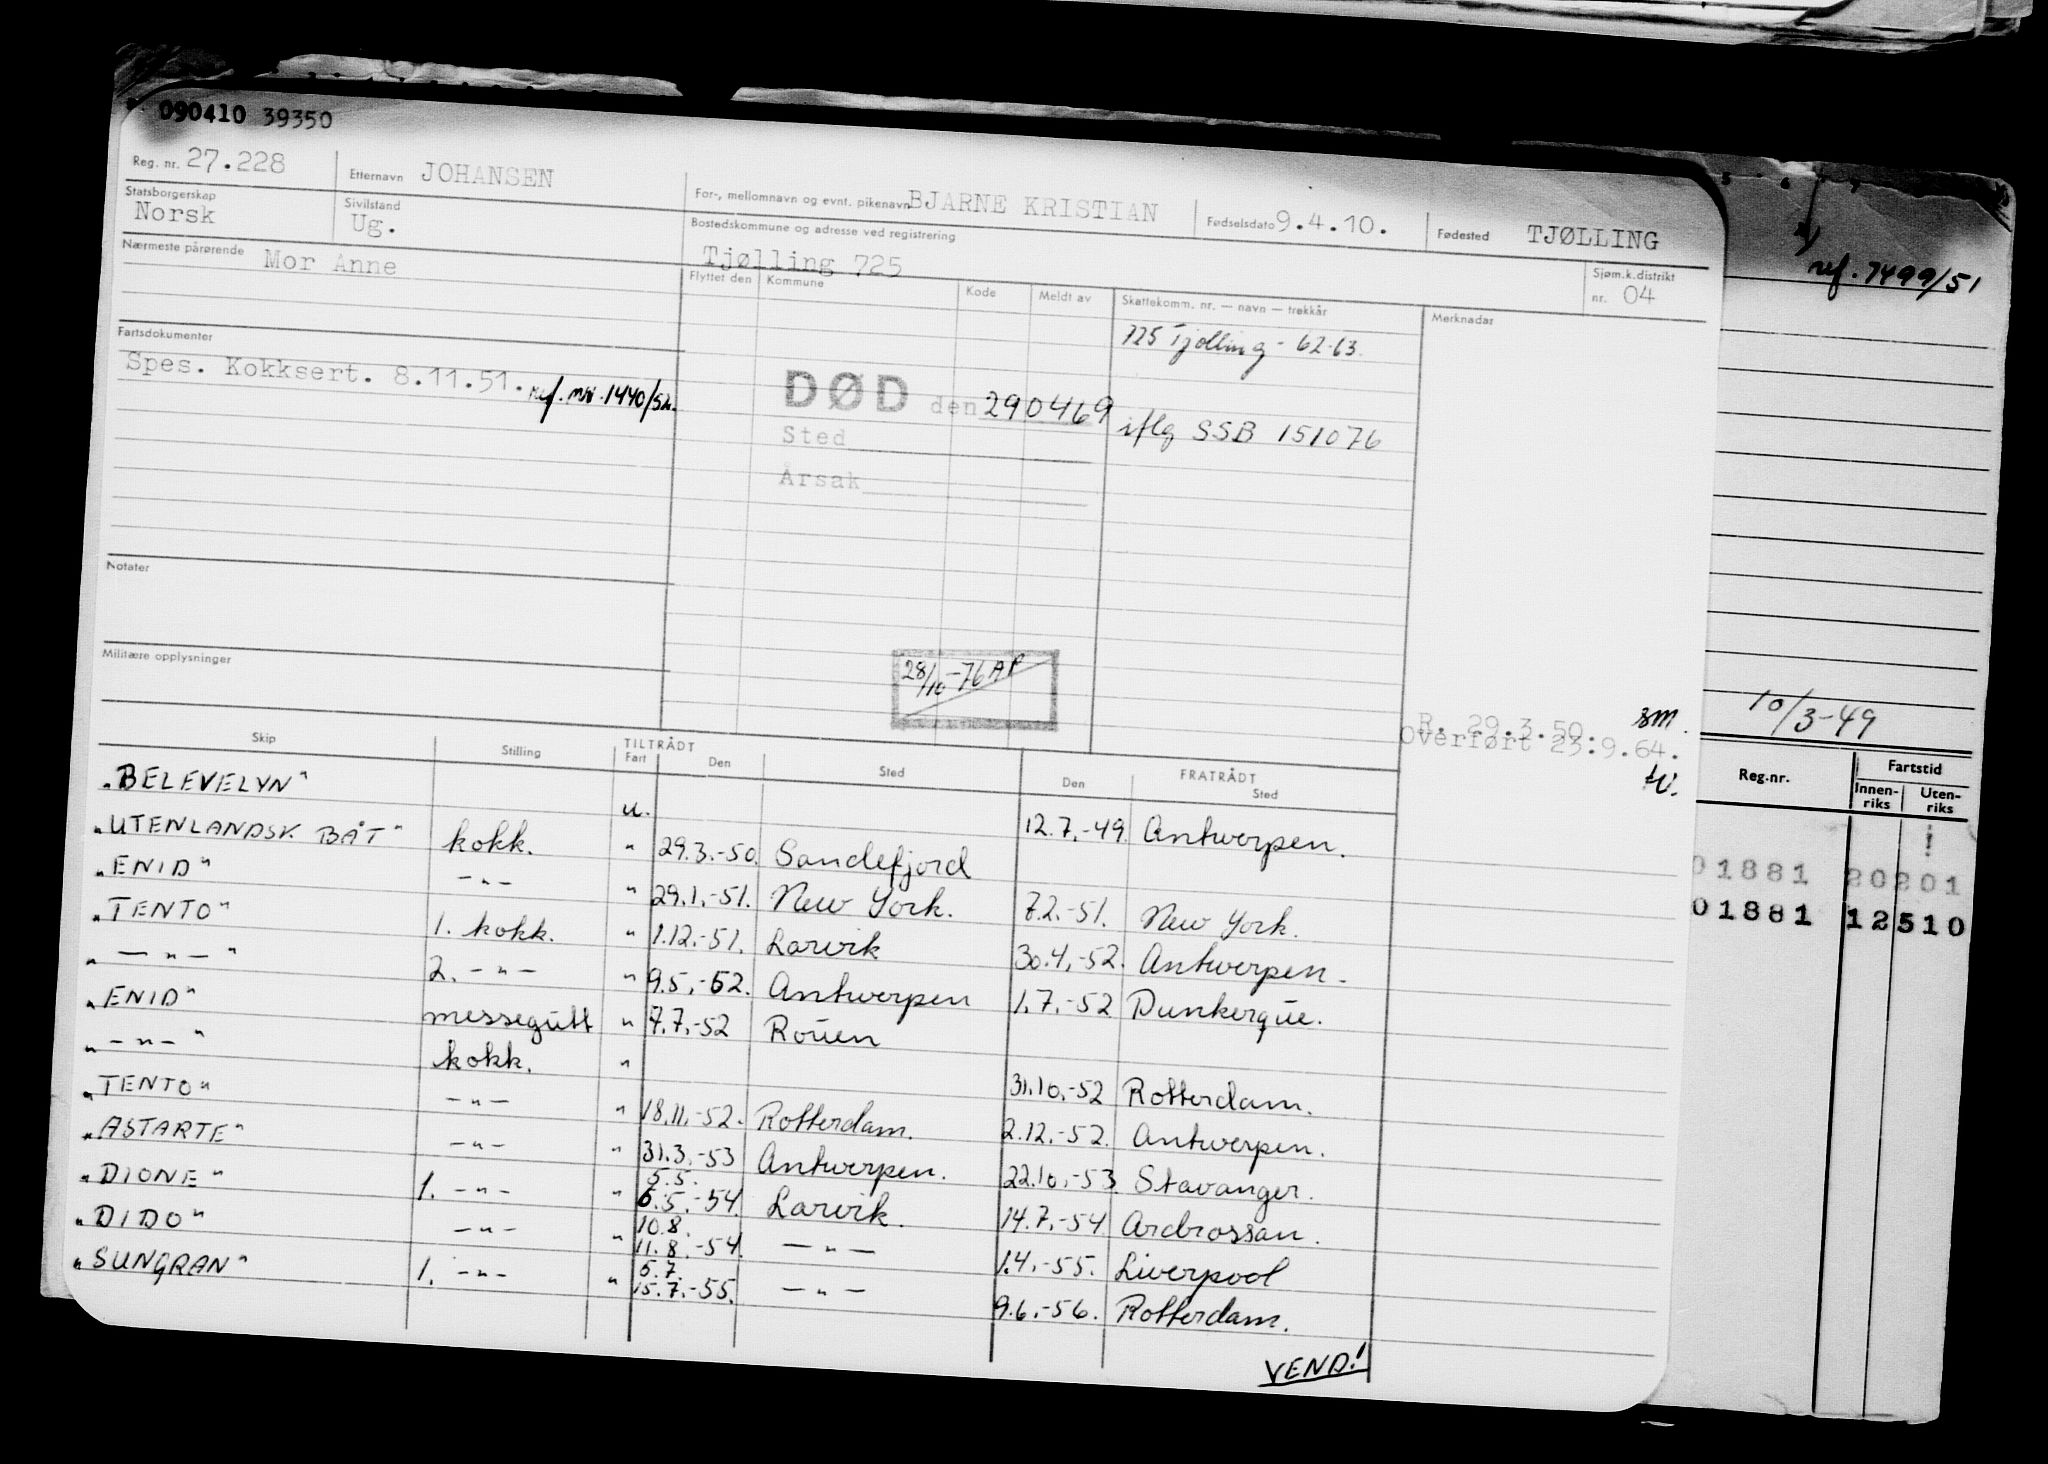 090410 39350
Reg. nr. 27.228 Etternavn JOHANSEN For-, mellomnavn og evnt. pikenavn BJARNE KRISTIAN Fødselsdato 9.4.10. Fødested TJØLLING
Statsborgerskap Norsk Sivilstand Ug. Bostedskommune og adresse ved registrering Tjølling 725 Sjøm.k.distrikt nr. 04
Nærmeste pårørende Mor Anne
Flyttet den Kommune Kode Meldt av Skattekomm. nr. — navn — trekkår Merknader
725 Tjølling - 62-63.
Fartsdokumenter
Spes. Kokksert. 8.11.51. ref. nr. 1440/52.
DØD den 290469 iflg SSB 151076
Sted
Årsak
Notater
Militære opplysninger
28/10-76 AP
R. 29.3.50. sm.
Overført 23.9.64.
TILTRÅDT FRATRÅDT
Skip Stilling Fart Den Sted Den Sted
"BELEVELYN" u. 12.7.-49. Antwerpen.
"UTENLANDSK BÅT" kokk. " 29.3.-50. Sandefjord
"ENID" -"- " 29.1.-51. New York. 7.2.-51. New York.
"TENTO" 1. kokk. " 1.12.-51. Larvik 30.4.-52. Antwerpen.
"-"-" 2. -"- " 9.5.-52. Antwerpen 1.7.-52 Dunkerque.
"ENID" messegutt " 7.7.-52 Rouen
"-"-" kokk. " 31.10.-52 Rotterdam.
"TENTO" -"- " 18.11.-52. Rotterdam. 2.12.-52. Antwerpen.
"ASTARTE" -"- " 31.3.-53 Antwerpen. 22.10.-53 Stavanger.
"DIONE" 1. -"- " 5.5. 6.5.-54. Larvik. 14.7.-54 Ardrossan.
"DIDO" -"- " 10.8. 11.8.-54. -"- 1.4.-55. Liverpool
"SUNGRAN" 1. -"- " 6.7. 15.7.-55. -"- 9.6.-56. Rotterdam.
VEND!
ref. 7499/51
10/3-49
Reg.nr. Fartstid
Innen-riks Uten-riks
01881 20201
01881 12510